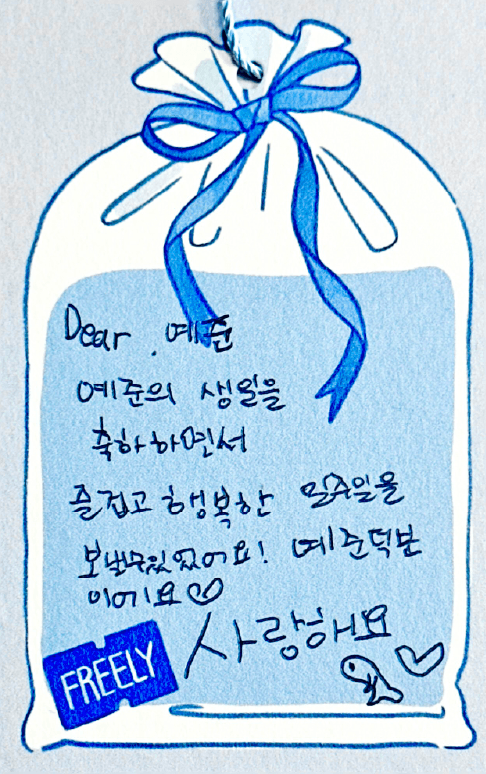 Dear. 예준
예준의 생일을
축하하면서
즐겁고 행복한 일주일을
보낼수있었어요! 예준덕분
이에요♡
사랑해요
FREELY